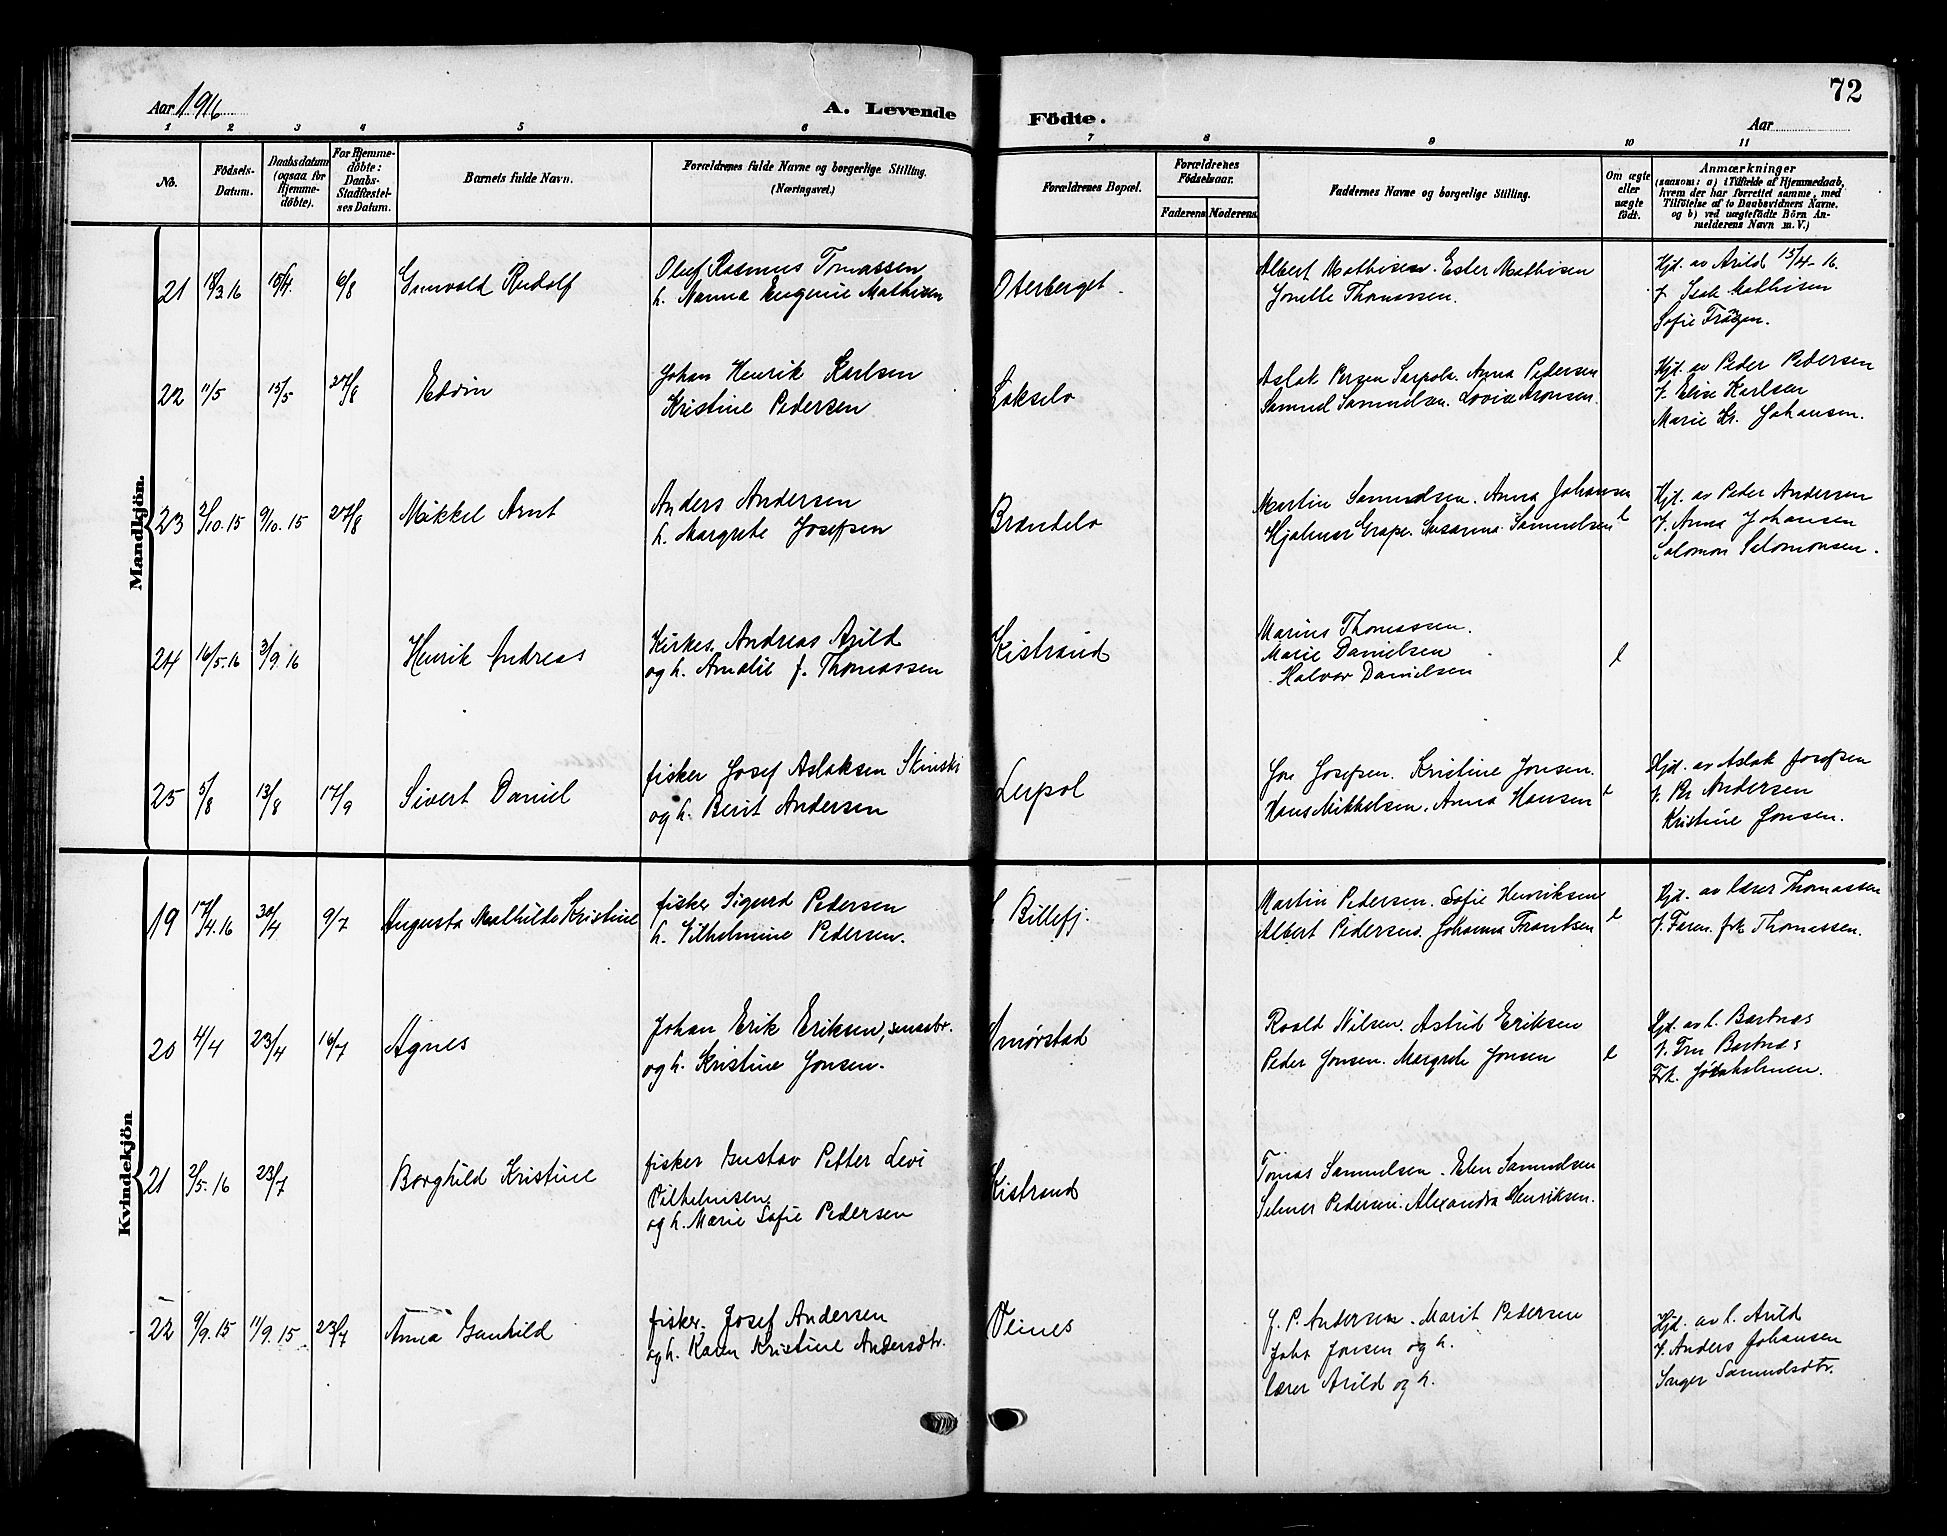 72
Aar 1916
A. Levende Födte.
Aar
1 2 3 4 5 6 7 8 9 10 11
No.
Födsels-Datum.
Daabsdatum (ogsaa for Hjemme-döbte).
For Hjemme-döbte: Daabs-Stadfæstel-ses Datum.
Barnets fulde Navn.
Forældrenes fulde Navne og borgerlige Stilling.
(Næringsvei.)
Forældrenes Bopæl.
Forældrenes Födselsaar.
Faderens Moderens
Faddernes Navne og borgerlige Stilling.
Om ægte eller uægte födt.
Anmærkninger
(saasom: a) i Tilfælde af Hjemmedaab,
hvem der har forrettet samme, med
Tilföielse af to Daabsvidners Navne,
og b) ved uægtefödte Börn An-
melderens Navn m. V.)
Mandkjön.
21 3.16 15/4. 6/8 Gunvald Rudolf
Oluf Rasmus Tomassen
h. Nanna Eugenie Mathisen
Oterberget.
Albert Mathisen. Ester Mathisen
Jonette Thomassen.
Hjd. av Arild 15/4-16.
V. Isak Mathisen
Sofie
22 11/5 15/5 27/8 Edvin
Johan Henrik Karlsen
Kristine Pedersen
Lakselv
Aslak Persen Sarpola. Anna Pedersen
Samuel Samuelsen. Lovise Aronsen.
Hjd. av Peder Pedersen
V. Elise Karlsen
Marie Kr. Johansen.
23 2/10.15 9/10.15 27/8 Mikkel Arnt
Anders Andersen
h. Margrete Josefsen
Brændelv
Martin Samuelsen. Anna Johansen
Hjalmar Grape. Susanna Samuelsen e
Hjd. av Peder Andersen
V. Anna Johansen
Salomon Salomonsen.
24 16/5.16 3/9.16 Henrik Andreas
Kirkes. Andreas Arild
og h. Amalie f. Thomassen
Kistrand
Marius Thomassen.
Marie Danielsen
Halvor Danielsen
e
25 5/8 13/8 17/9 Sivert Daniel
fisker Josef Aslaksen
og h. Berit Andersen
Leirpol
Jon Josefsen. Kristine Jonsen.
Hans Mikkelsen. Anna Hansen e
Hjd. av Aslak Josefsen
V. Per Andersen
Kristine Jonsen.
Kvindekjön
19 17/4.16 30/4 9/7 Augusta Mathilde Kristine
fisker Sigurd Pedersen
h. Vilhelmine Pedersen.
Billefj.
Martin Pedersen. Sofie Henriksen
Albert Pedersen. Johanna Frantsen e
Hjd. av lærer Thomassen
V. Faren. frk Thomassen.
20 4/4 23/4 16/7 Agnes
Johan Erik Eriksen, smaabr.
og h. Kristine Jonsen.
Smørstad
Roald Nilsen. Astrid Eriksen
Peder Jonsen. Margrete Jonsen e
Hjd. av l. Bartnæs
V. Fru Bartnæs
Frk.
21 2/5.16 23/7 Borghild Kristine
fisker Gustav Petter Levi
Vilhelmsen
og h. Marie Sofie Pedersen
Kistrand
Tomas Samuelsen. Elen Samuelsen
Selmer Pedersen. Alexandra Henriksen.
22 9/9.15 11/9.15 23/7 Anna Gunhild
fisker. Josef Andersen
og h. Karen Kristine Andersdtr.
Veines
J. P. Andersen. Marit Pedersen
John Jonsen og h.
lærer Arild og h.
Hjd. av l. Arild
V. Anders Johansen
Inger Samuelsdtr.